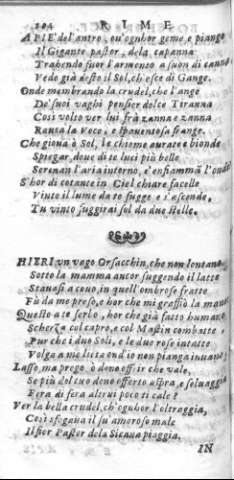 104 RIME
A PIE' del'antro, ou'ognhor geme, e piange
Il Gigante pastor, dela capanna
Trahendo fuor l'armento a suon di canna
Vede già desto il Sol, ch'esce di Gange.
Onde membrando la crudel, che l'ange
De' suoi vaghi pensier dolce Tiranna
Così volto ver lui frà zanna e zanna
Rauca la voce, e spauentosa frange.
Che gioua ò Sol, le chiome aurate e bionde
Spiegar, doue di te luci più belle
Serenan l'aria intorno, e'nfiamman l'onde
S'hor di cotante in Ciel chiare facelle
Vinto il lume da te fugge e s'asconde,
Tu vinto fuggirai sol da due stelle.
HIERI vn vago Orsacchin, che non lontano
Sotto la mamma ancor suggendo il latte
Stauasi a couo, in quell'ombrose fratte
Fù da me preso, e hor che mi graffiò la mano
Quello a te serbo, hor che già fatto humano
Scherza col capro, e col Mastin combatte
Pur che i duo Soli, e le due rose intatte
Volga a me lieta ond'io non pianga inuano
Lasso, ma prego, ò dono offrir che vale,
Se più del tuo dono offerto aspra, e seluaggia
Fera di fera altrui poco ti cale?
Ver la bella crudel, ch'ognhor l'oltraggia,
Così sfogaua il su'amoroso male
Il fier Pastor dela Sicana piaggia.
IN